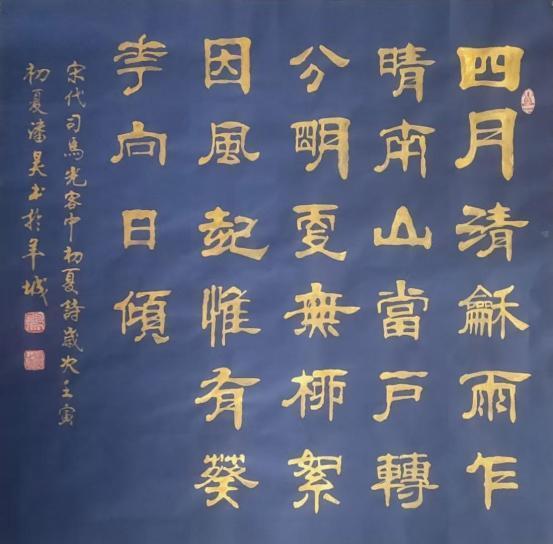 四月清龢雨乍
晴南山當戶轉
分明更無柳絮
因風起惟有葵
花向日傾
宋代司馬光客中初夏詩歲次壬寅
初夏潘昊书於羊城